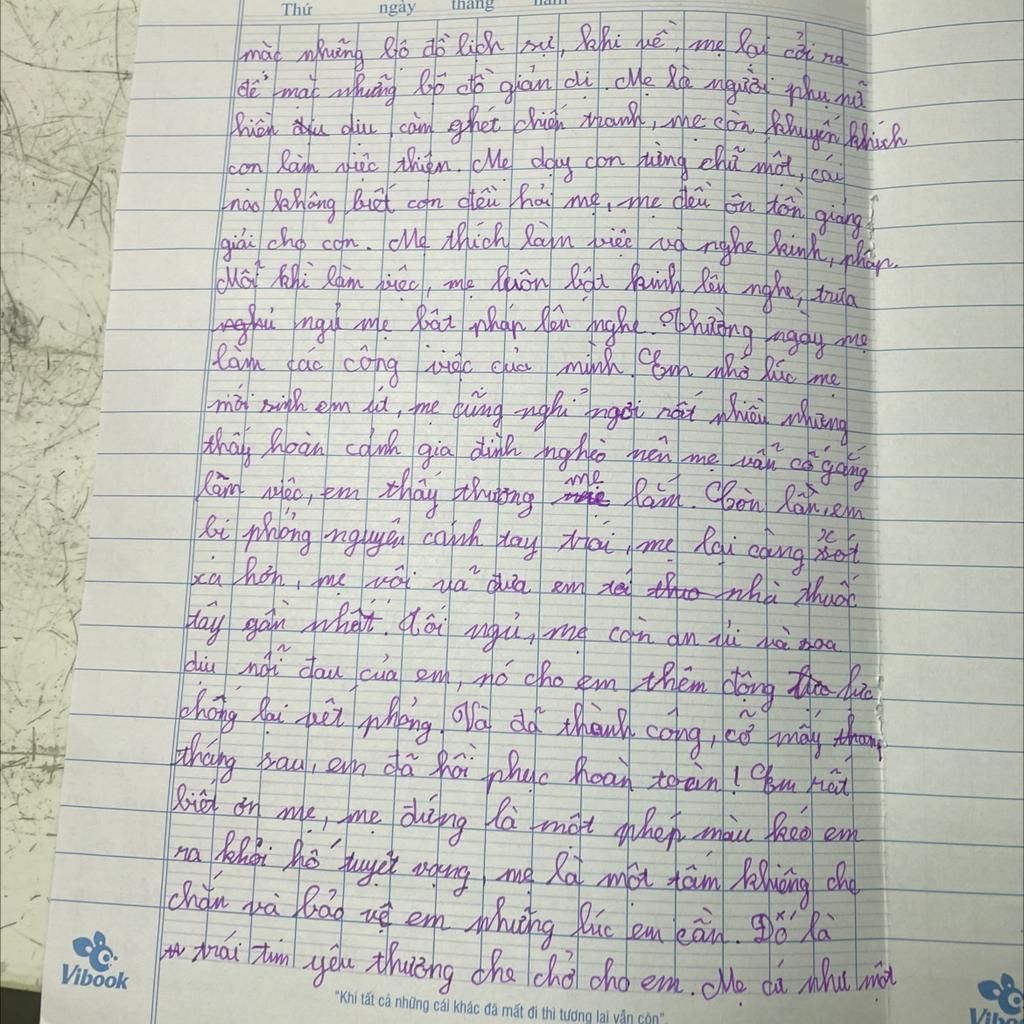 Thứ ngày tháng năm
mặc những bộ đồ lịch sự, khi về, mẹ lại cởi ra
để mặc những bộ đồ giản dị. Mẹ là người phụ nữ
hiền dịu dịu, căm ghét chiến tranh, mẹ còn khuyến khích
con làm việc thiện. Mẹ dạy con từng chữ một, cái
nào không biết con đều hỏi mẹ, mẹ đều ôn tồn giảng
giải cho con. Mẹ thích làm việc và nghe kinh, pháp.
Mỗi khi làm việc, mẹ luôn bật kinh lên nghe, trưa
nghủ ngủ mẹ bật pháp lên nghe. Thường ngày mẹ
làm các công việc của mình. Em nhớ lúc mẹ
mới sinh em út, mẹ cũng nghỉ ngơi rất nhiều nhưng
thấy hoàn cảnh gia đình nghèo nên mẹ vẫn cố gắng
làm việc, em thấy thương mẹ lắm. Còn lần, em
bị phỏng nguyên cánh tay trái, mẹ lại càng xót
xa hơn, mẹ vội vả đưa em tới thuo nhà thuốc
tây gần nhất. Tối ngủ, mẹ còn an ủi và xoa
dịu nỗi đau của em, nó cho em thêm động lực
chống lại vết phỏng. Và đã thành công, cỡ mấy thang
tháng sau, em đã hồi phục hoàn toàn! Em rất
biết ơn mẹ, mẹ đúng là một phép màu kéo em
ra khỏi hố tuyệt vọng, mẹ là một tấm khiêng che
chắn và bảo vệ em những lúc em cần. Đó là
trái tim yêu thương che chở cho em. Mẹ cứ như một
Vibook
"Khi tất cả những cái khác đã mất đi thì tương lai vẫn còn"
Vibook